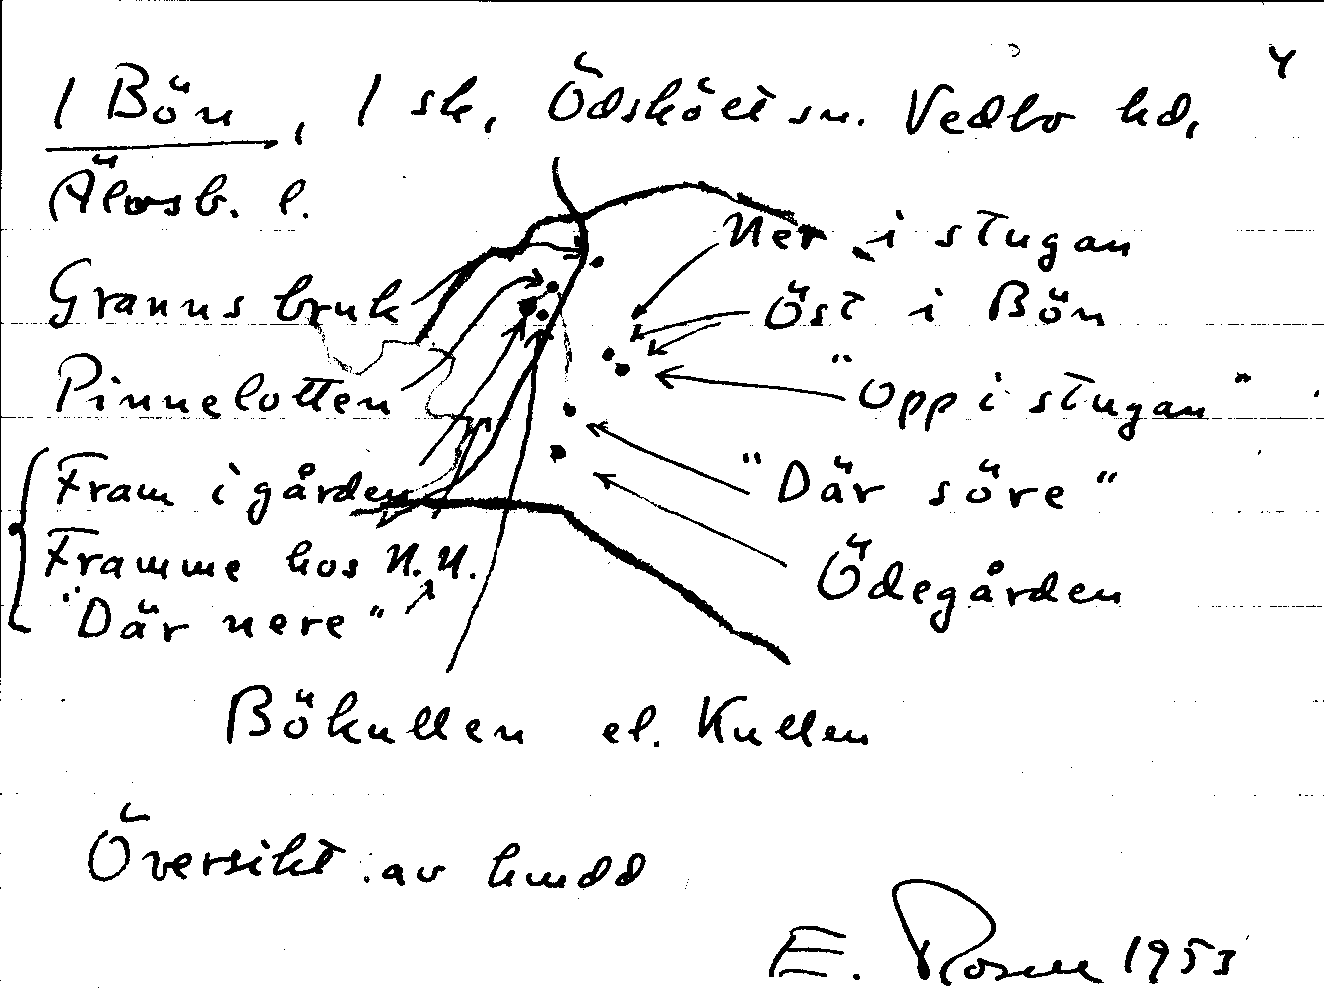 4
1 Bön, 1 sk, Ödskölt sn. Vedbo hd,
Älvsb. l.
Ner i stugan
Granns bruk
Öst i Bön
Pinnelotten
"Opp i stugan"
Fram i gården
"Där söre"
Framme hos N.N.
Ödegården
"Där nere"
Bökullen el. Kullen
Översikt av hmdd
E. Rosell 1953